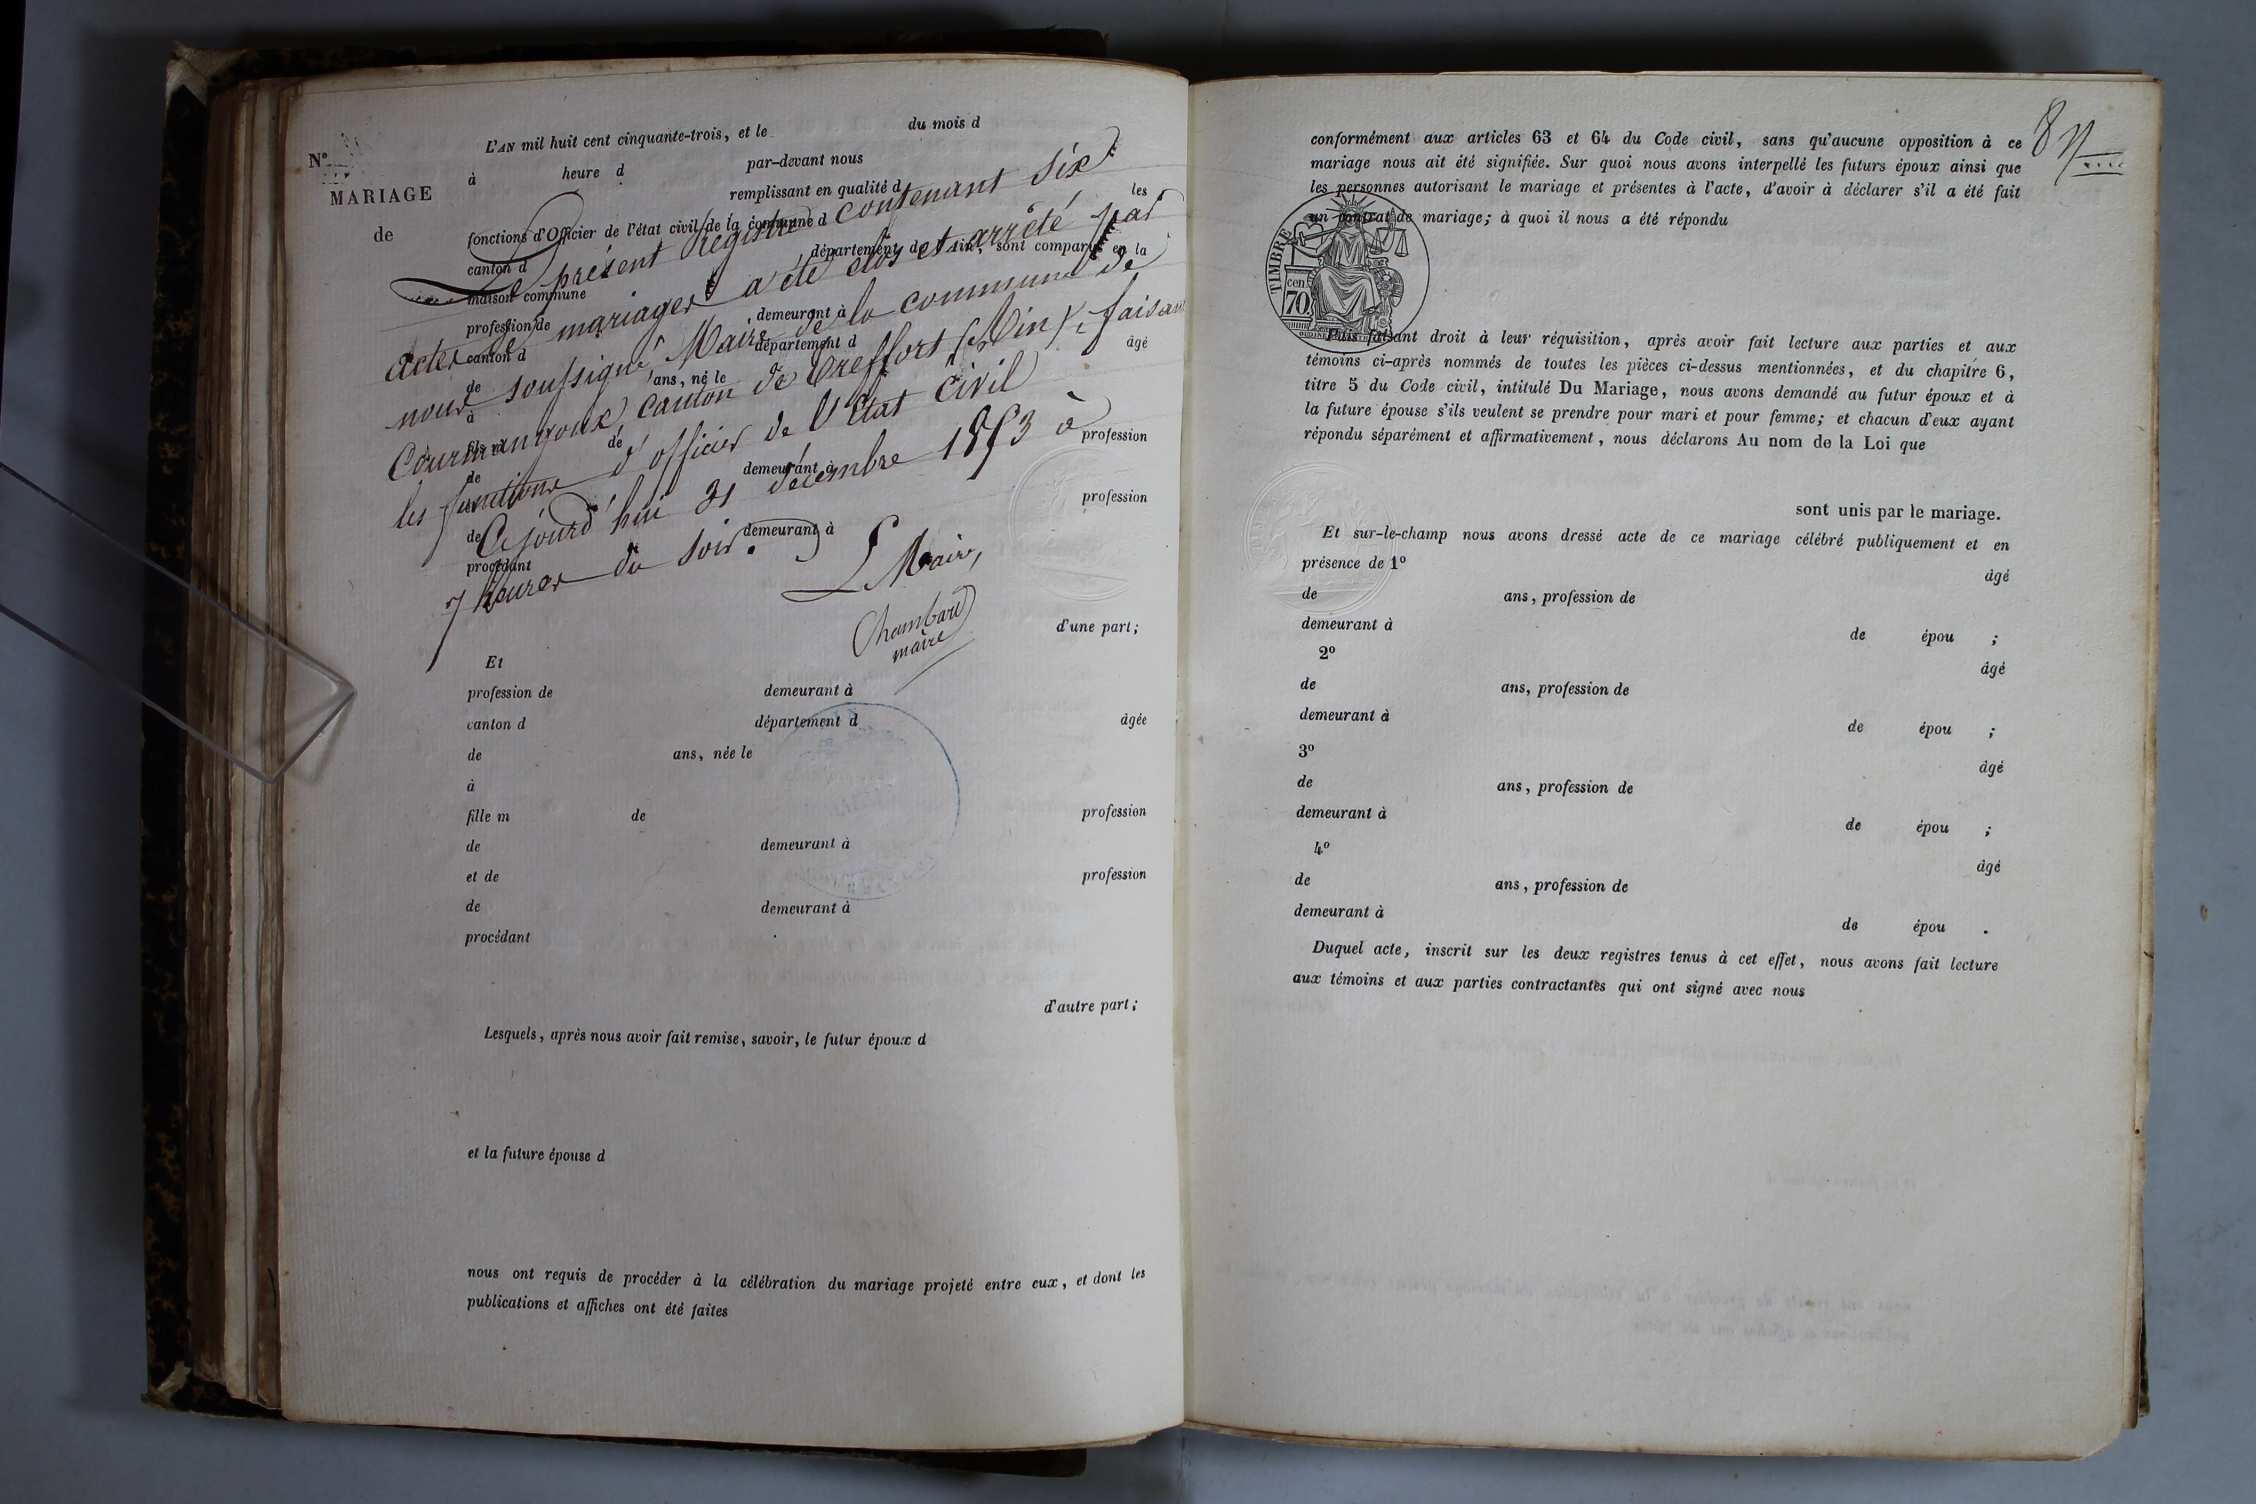 L'AN mil huit cent cinquante-trois, et le du mois d
No
MARIAGE
de
à heure d par-devant nous
remplissant en qualité d les
fonctions d'Officier de l'état civil de la commune d
canton d , département de l'Ain, sont comparus en la
maison commune
profession de demeurant à
canton d département d âgé
de ans, né le
à
fils m de profession
de demeurant à
et de profession
de demeurant à
procédant
Le présent Registre contenant six
actes de mariages a été clos et arrêté par
nous soussigné Maire de la commune de
Courmangoux canton de Treffort (Ain), faisant
les fonctions d'officier de l'Etat civil
Cejourd'hui 31 décembre 1853 à
7 heures du soir.
L Maire,
Chambard
maire
d'une part;
Et
profession de demeurant à
canton d département d âgée
de ans, née le
à
fille m de profession
de demeurant à
et de profession
de demeurant à
procédant
d'autre part;
Lesquels, après nous avoir fait remise, savoir, le futur époux d
et la future épouse d
nous ont requis de procéder à la célébration du mariage projeté entre eux, et dont les
publications et affiches ont été faites
conformément aux articles 63 et 64 du Code civil, sans qu'aucune opposition à ce
mariage nous ait été signifiée. Sur quoi nous avons interpellé les futurs époux ainsi que
les personnes autorisant le mariage et présentes à l'acte, d'avoir à déclarer s'il a été fait
un contrat de mariage; à quoi il nous a été répondu
TIMBRE
70 cen
Puis faisant droit à leur réquisition, après avoir fait lecture aux parties et aux
témoins ci-après nommés de toutes les pièces ci-dessus mentionnées, et du chapitre 6,
titre 5 du Code civil, intitulé Du Mariage, nous avons demandé au futur époux et à
la future épouse s'ils veulent se prendre pour mari et pour femme; et chacun d'eux ayant
répondu séparément et affirmativement, nous déclarons Au nom de la Loi que
sont unis par le mariage.
Et sur-le-champ nous avons dressé acte de ce mariage célébré publiquement et en
présence de 1o âgé
de ans, profession de
demeurant à de épou ;
2o âgé
de ans, profession de
demeurant à de épou ;
3o âgé
de ans, profession de
demeurant à de épou ;
4o âgé
de ans, profession de
demeurant à de épou .
Duquel acte, inscrit sur les deux registres tenus à cet effet, nous avons fait lecture
aux témoins et aux parties contractantes qui ont signé avec nous